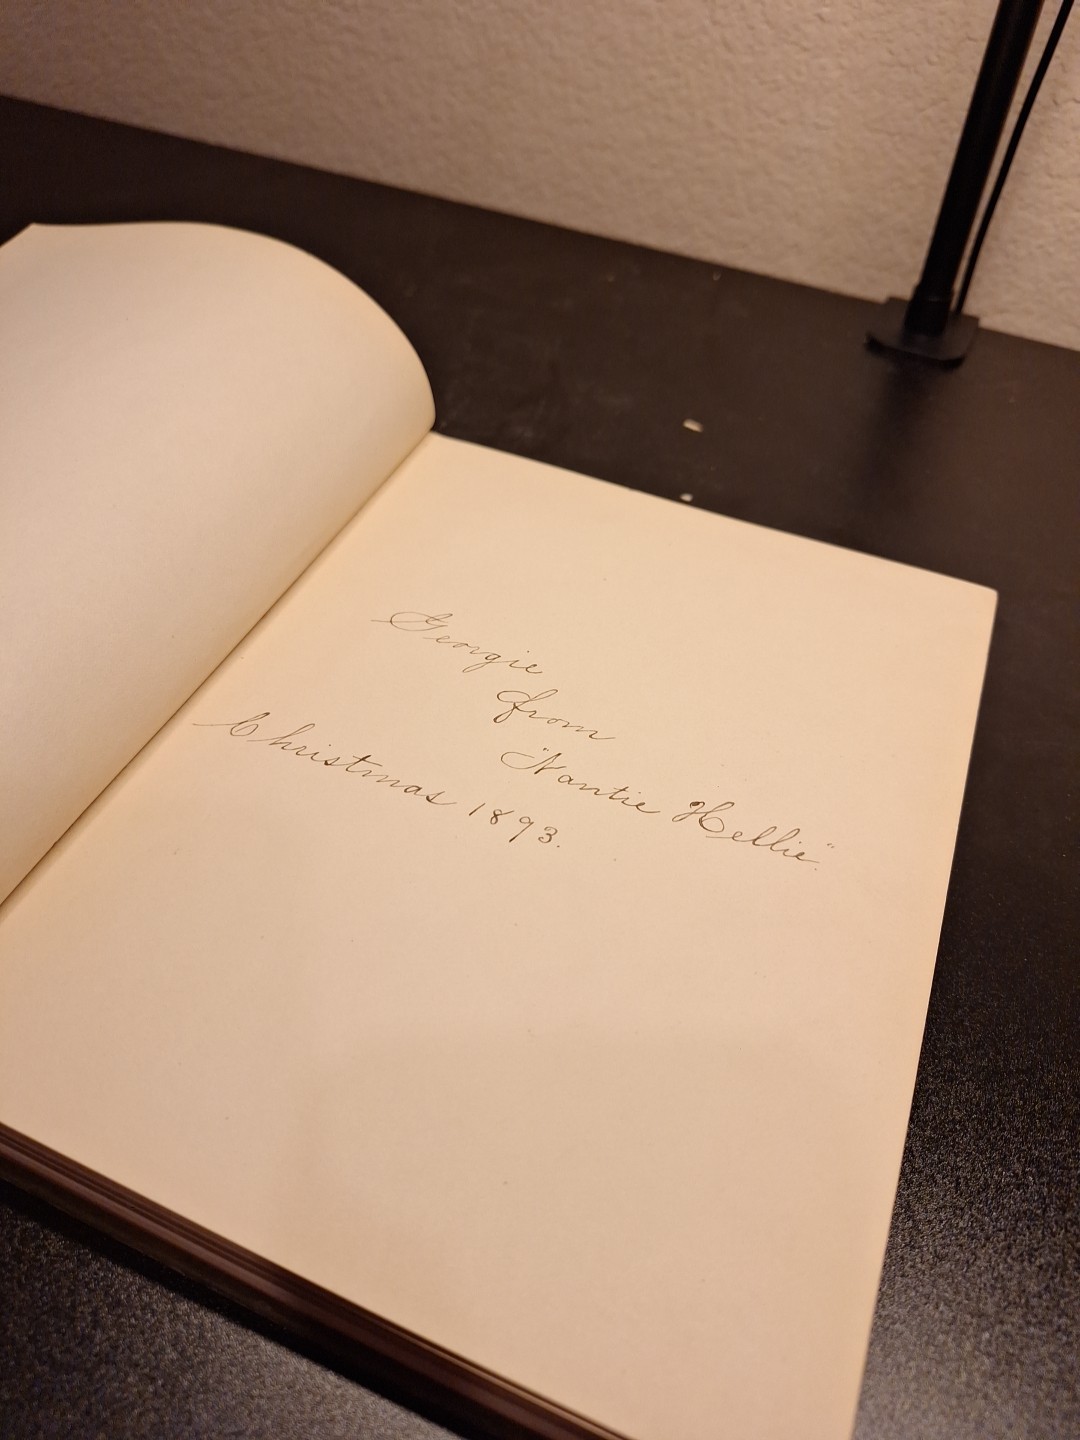 Georgie
from
"Nantie Hellie"
Christmas 1893.